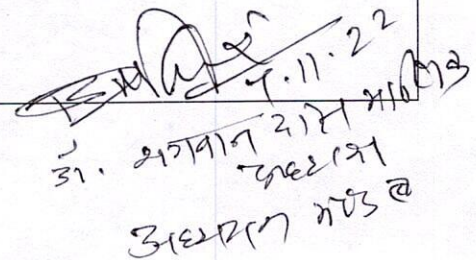 7.11.22
डॉ. भगवान दास मानिक
अध्यक्ष
अध्ययन मण्डल